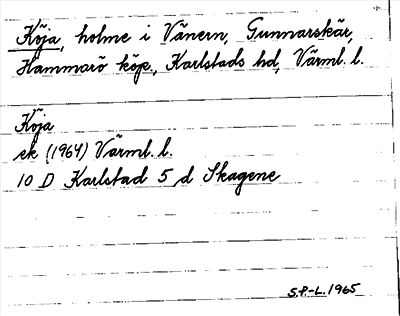 Köja, holme i Vänern, Gunnarskär,
Hammarö köp., Karlstads hd, Värml. l.
Köja
ek (1964) Värml. l.
10 D Karlstad 5 d Skagene
S.P.-L. 1965